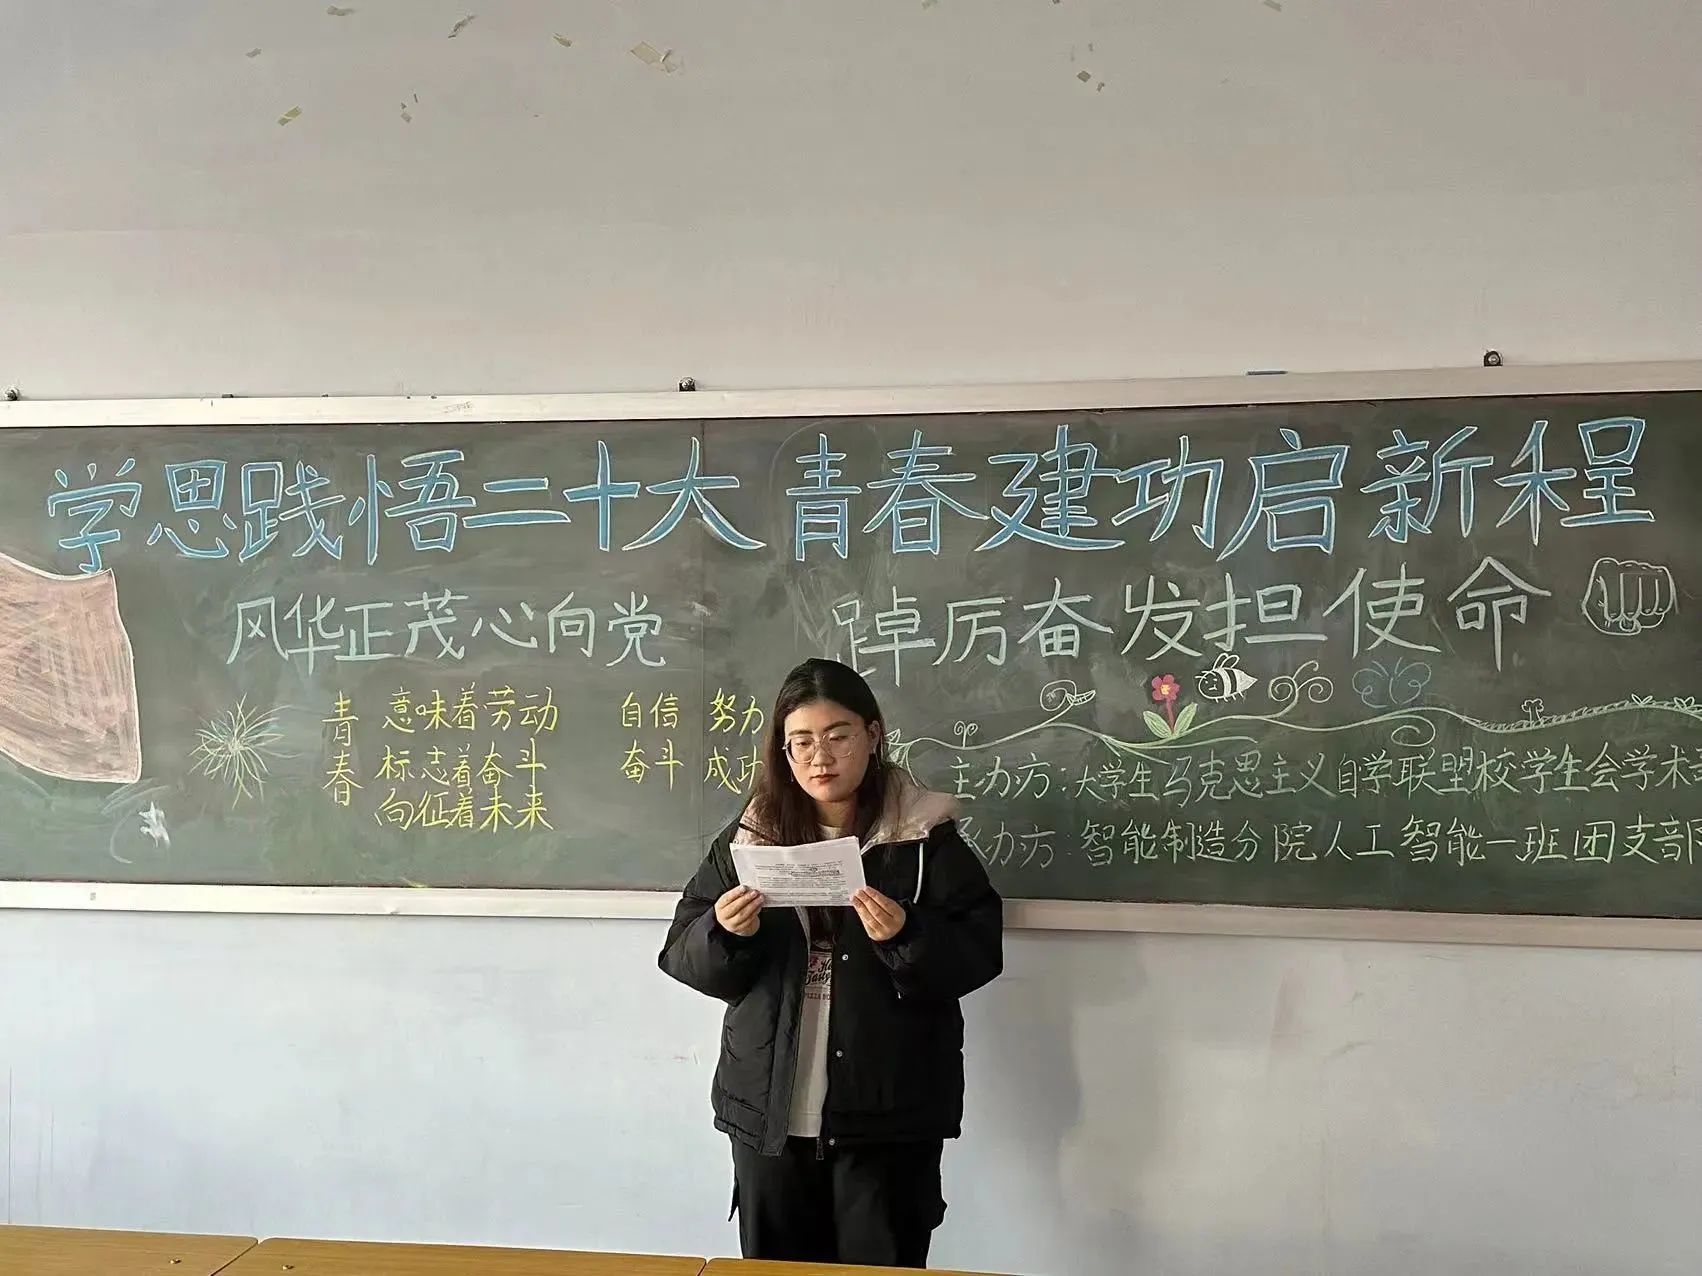 学思践悟二十大 青春建功启新程
风华正茂心向党 踔厉奋发担使命
青春
意味着劳动
标志着奋斗
向征着未来
自信 努力
奋斗 成功
主办方:大学生马克思主义自学联盟校学生会学术
承办方:智能制造分院人工智能一班团支部